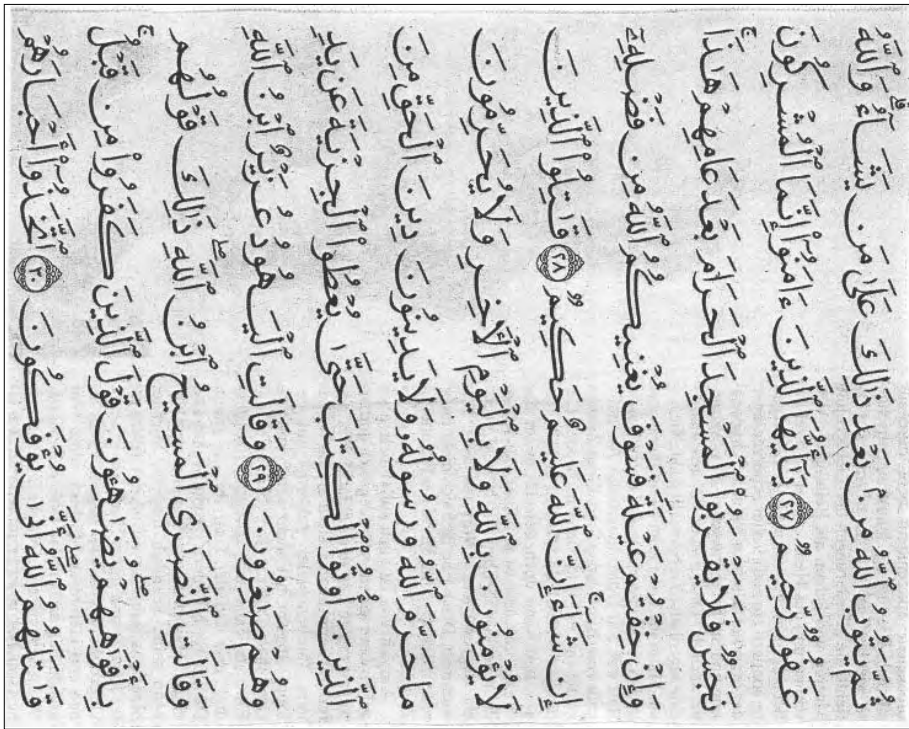 ثُمَّ يَتُوبُ ٱللَّهُ مِنۢ بَعْدِ ذَٰلِكَ عَلَىٰ مَن يَشَآءُۗ وَٱللَّهُ
غَفُورٌ رَّحِيمٌ ٢٧ يَٰٓأَيُّهَا ٱلَّذِينَ ءَامَنُوٓا۟ إِنَّمَا ٱلْمُشْرِكُونَ
نَجَسٌ فَلَا يَقْرَبُوا۟ ٱلْمَسْجِدَ ٱلْحَرَامَ بَعْدَ عَامِهِمْ هَٰذَاۚ
وَإِنْ خِفْتُمْ عَيْلَةً فَسَوْفَ يُغْنِيكُمُ ٱللَّهُ مِن فَضْلِهِۦٓ
إِن شَآءَۚ إِنَّ ٱللَّهَ عَلِيمٌ حَكِيمٌ ٢٨ قَٰتِلُوا۟ ٱلَّذِينَ
لَا يُؤْمِنُونَ بِٱللَّهِ وَلَا بِٱلْيَوْمِ ٱلْءَاخِرِ وَلَا يُحَرِّمُونَ
مَا حَرَّمَ ٱللَّهُ وَرَسُولُهُۥ وَلَا يَدِينُونَ دِينَ ٱلْحَقِّ مِنَ
ٱلَّذِينَ أُوتُوا۟ ٱلْكِتَٰبَ حَتَّىٰ يُعْطُوا۟ ٱلْجِزْيَةَ عَن يَدٍ
وَهُمْ صَٰغِرُونَ ٢٩ وَقَالَتِ ٱلْيَهُودُ عُزَيْرٌ ٱبْنُ ٱللَّهِ
وَقَالَتِ ٱلنَّصَٰرَى ٱلْمَسِيحُ ٱبْنُ ٱللَّهِۖ ذَٰلِكَ قَوْلُهُم
بِأَفْوَٰهِهِمْۖ يُضَٰهِـُٔونَ قَوْلَ ٱلَّذِينَ كَفَرُوا۟ مِن قَبْلُۚ
قَٰتَلَهُمُ ٱللَّهُۖ أَنَّىٰ يُؤْفَكُونَ ٣٠ ٱتَّخَذُوٓا۟ أَحْبَارَهُمْ